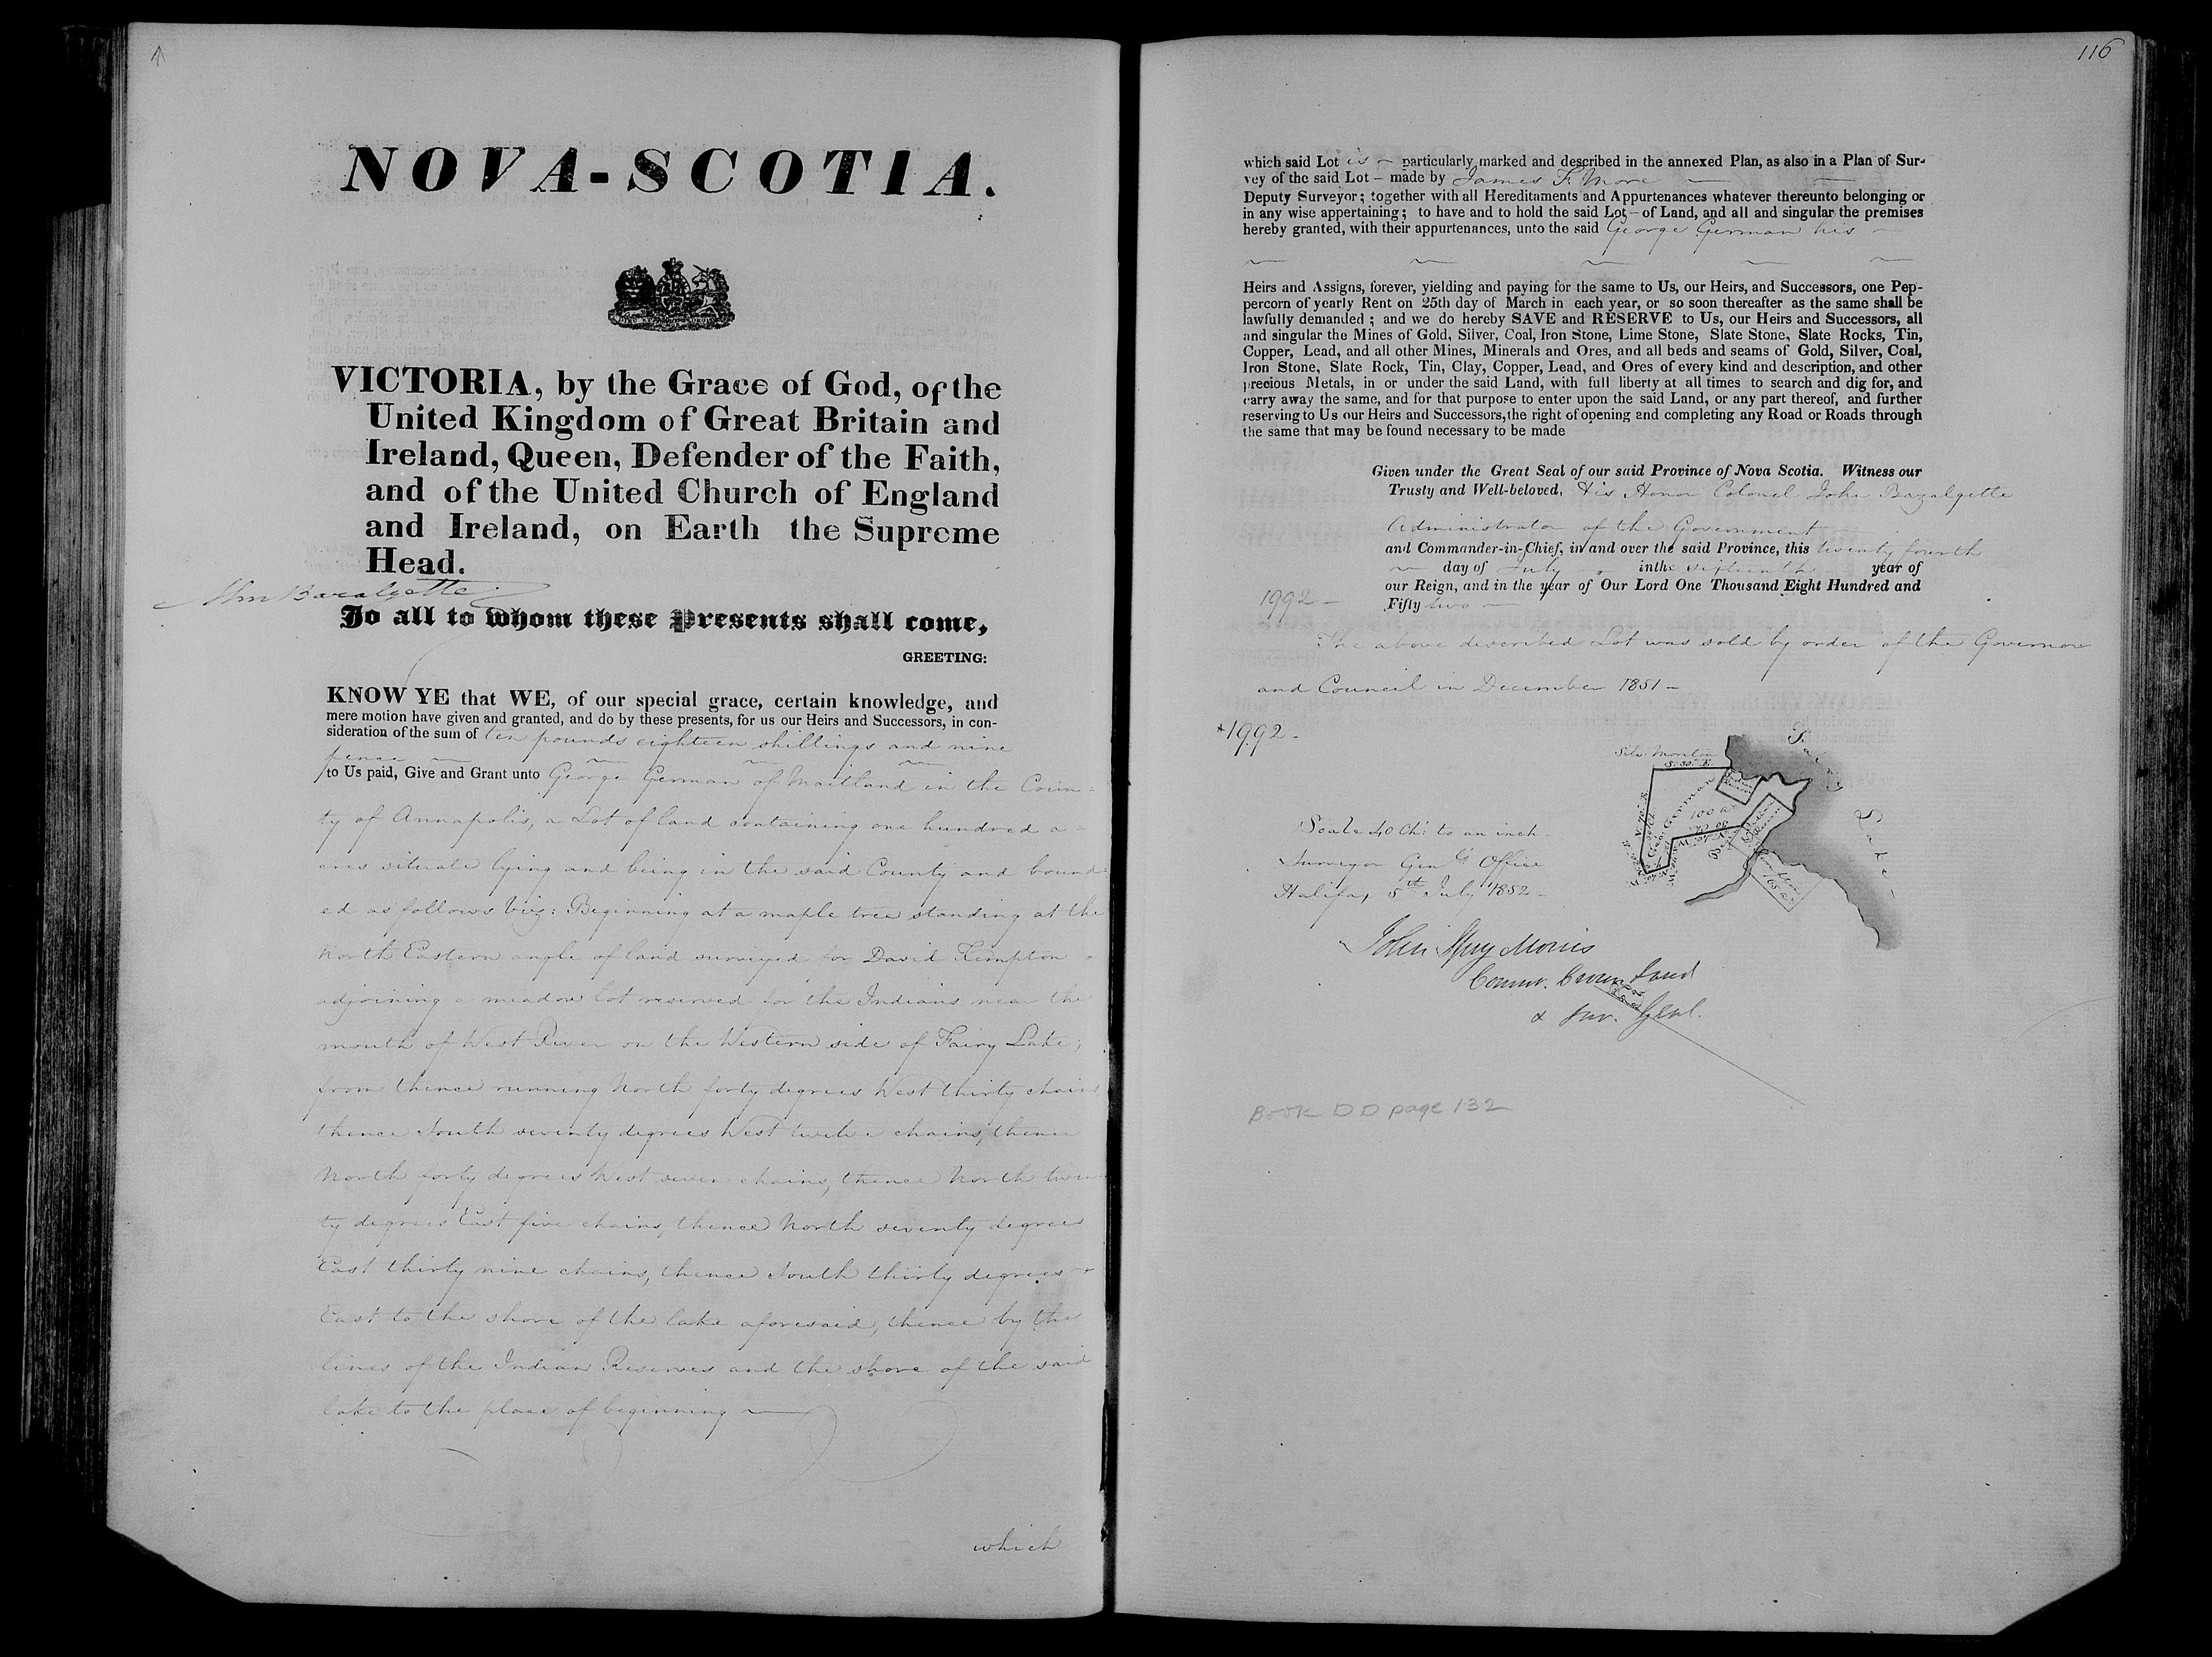 NOVA-SCOTIA.
VICTORIA, by the Grace of God, of the
United Kingdom of Great Britain and
Ireland, Queen, Defender of the Faith,
and of the United Church of England
and Ireland, on Earth the Supreme
Head.
John Bazalgette
To all to whom these Presents shall come,
GREETING:
KNOW YE that WE, of our special grace, certain knowledge, and
mere motion have given and granted, and do by these presents, for us our Heirs and Successors, in con-
sideration of the sum of ten pounds eighteen shillings and nine
pence
to Us paid, Give and Grant unto George German of Maitland in the Coun=
ty of Annapolis, a Lot of land containing one hundred a=
cres situate lying and being in the said County and bound=
ed as follows viz: Beginning at a maple tree standing at the
North Eastern angle of land surveyed for David Kempton
adjoining a meadow lot reserved for the Indians near the
mouth of West River on the Western side of Fairy Lake;
from thence running North forty degrees West thirty chains
thence South seventy degrees West twelve chains, thence
North forty degrees West seven chains, thence North twen
ty degrees East five chains, thence North seventy degrees
East thirty nine chains, thence South thirty degrees
East to the shore of the lake aforesaid, thence by the
lines of the Indian Reserves and the shore of the said
lake to the place of beginning
which
116
which said Lot is particularly marked and described in the annexed Plan, as also in a Plan of Sur-
vey of the said Lot made by James F. More
Deputy Surveyor; together with all Hereditaments and Appurtenances whatever thereunto belonging or
in any wise appertaining; to have and to hold the said Lot of Land, and all and singular the premises
hereby granted, with their appurtenances, unto the said George German his
Heirs and Assigns, forever, yielding and paying for the same to Us, our Heirs, and Successors, one Pep-
percorn of yearly Rent on 25th day of March in each year, or so soon thereafter as the same shall be
lawfully demanded; and we do hereby SAVE and RESERVE to Us, our Heirs and Successors, all
and singular the Mines of Gold, Silver, Coal, Iron Stone, Lime Stone, Slate Stone, Slate Rocks, Tin,
Copper, Lead, and all other Mines, Minerals and Ores, and all beds and seams of Gold, Silver, Coal,
Iron Stone, Slate Rock, Tin, Clay, Copper, Lead, and Ores of every kind and description, and other
precious Metals, in or under the said Land, with full liberty at all times to search and dig for, and
carry away the same, and for that purpose to enter upon the said Land, or any part thereof, and further
reserving to Us our Heirs and Successors, the right of opening and completing any Road or Roads through
the same that may be found necessary to be made
Given under the Great Seal of our said Province of Nova Scotia. Witness our
Trusty and Well-beloved, His Honor Colonel John Bazalgette
Administrator of the Government
and Commander-in-Chief, in and over the said Province, this twenty fourth
day of July in the sixteenth year of
our Reign, and in the year of Our Lord One Thousand Eight Hundred and
Fifty two
1992
The above described Lot was sold by order of the Governor
and Council in December 1851
1992
Fairy Lake
S. 30° E.
Geo: German
100 a.
165 a.
Scale 40 Ch: to an inch
Surveyor Genl's Office
Halifax 5th July 1852
John Spry Morris
Commr. Crown Land
& Sur. Genl.
Book DD page 132